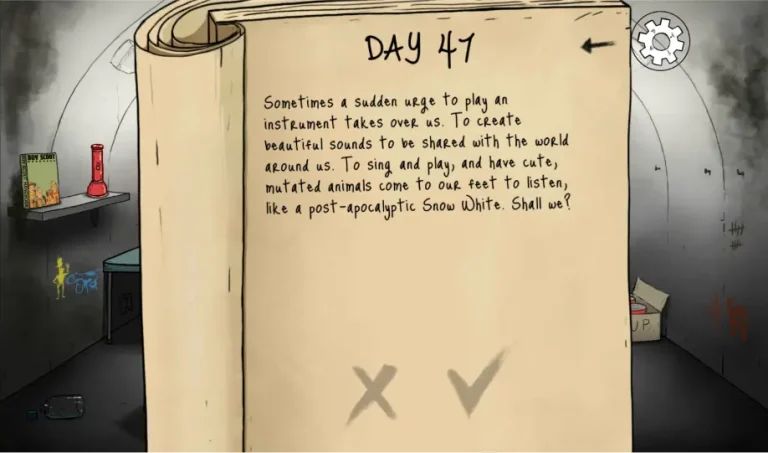 DAY 47
Sometimes a sudden urge to play an
instrument takes over us. To create
beautiful sounds to be shared with the world
around us. To sing and play, and have cute,
mutated animals come to our feet to listen,
like a post-apocalyptic Snow White. Shall we?
BOY SCOUT
UP